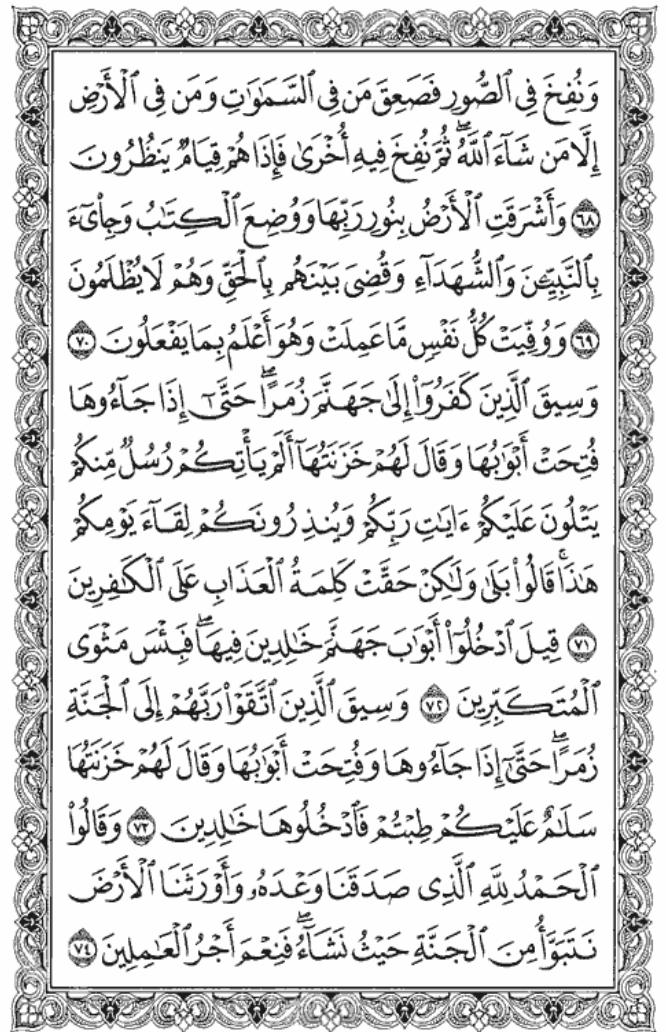 وَنُفِخَ فِي ٱلصُّورِ فَصَعِقَ مَن فِي ٱلسَّمَٰوَٰتِ وَمَن فِي ٱلْأَرْضِ
إِلَّا مَن شَآءَ ٱللَّهُۖ ثُمَّ نُفِخَ فِيهِ أُخْرَىٰ فَإِذَا هُمْ قِيَامٌ يَنظُرُونَ
٦٨ وَأَشْرَقَتِ ٱلْأَرْضُ بِنُورِ رَبِّهَا وَوُضِعَ ٱلْكِتَٰبُ وَجِاْيٓءَ
بِٱلنَّبِيِّـۧنَ وَٱلشُّهَدَآءِ وَقُضِيَ بَيْنَهُم بِٱلْحَقِّ وَهُمْ لَا يُظْلَمُونَ
٦٩ وَوُفِّيَتْ كُلُّ نَفْسٍ مَّا عَمِلَتْ وَهُوَ أَعْلَمُ بِمَا يَفْعَلُونَ ٧٠
وَسِيقَ ٱلَّذِينَ كَفَرُوٓاْ إِلَىٰ جَهَنَّمَ زُمَرًاۖ حَتَّىٰٓ إِذَا جَآءُوهَا
فُتِحَتْ أَبْوَٰبُهَا وَقَالَ لَهُمْ خَزَنَتُهَآ أَلَمْ يَأْتِكُمْ رُسُلٌ مِّنكُمْ
يَتْلُونَ عَلَيْكُمْ ءَايَٰتِ رَبِّكُمْ وَيُنذِرُونَكُمْ لِقَآءَ يَوْمِكُمْ
هَٰذَاۚ قَالُواْ بَلَىٰ وَلَٰكِنْ حَقَّتْ كَلِمَةُ ٱلْعَذَابِ عَلَى ٱلْكَٰفِرِينَ
٧١ قِيلَ ٱدْخُلُوٓاْ أَبْوَٰبَ جَهَنَّمَ خَٰلِدِينَ فِيهَاۖ فَبِئْسَ مَثْوَى
ٱلْمُتَكَبِّرِينَ ٧٢ وَسِيقَ ٱلَّذِينَ ٱتَّقَوْاْ رَبَّهُمْ إِلَى ٱلْجَنَّةِ
زُمَرًاۖ حَتَّىٰٓ إِذَا جَآءُوهَا وَفُتِحَتْ أَبْوَٰبُهَا وَقَالَ لَهُمْ خَزَنَتُهَا
سَلَٰمٌ عَلَيْكُمْ طِبْتُمْ فَٱدْخُلُوهَا خَٰلِدِينَ ٧٣ وَقَالُواْ
ٱلْحَمْدُ لِلَّهِ ٱلَّذِي صَدَقَنَا وَعْدَهُۥ وَأَوْرَثَنَا ٱلْأَرْضَ
نَتَبَوَّأُ مِنَ ٱلْجَنَّةِ حَيْثُ نَشَآءُۖ فَنِعْمَ أَجْرُ ٱلْعَٰمِلِينَ ٧٤